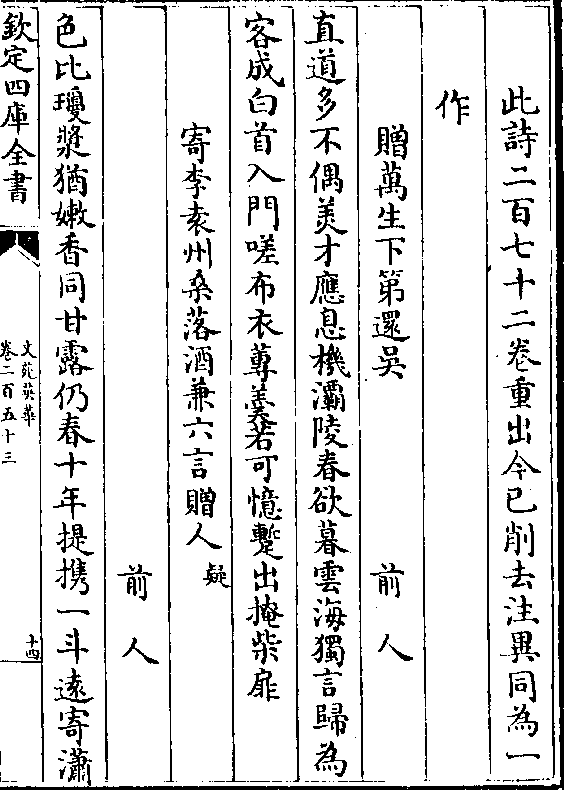 此詩二百七十二卷重出今已削去注異同為一
作
贈萬生下第還吳
前人
直道多不偶美才應息機灞陵春欲暮雲海獨言歸為
客成白首入門嗟布衣蓴羹若可憶蹔出掩柴扉
寄李袁州桑落酒兼六言贈人疑
前人
色比瓊漿猶嫩香同甘露仍春十年提攜一斗遠寄瀟
欽定四庫全書
文苑英華
卷二百五十三
十四